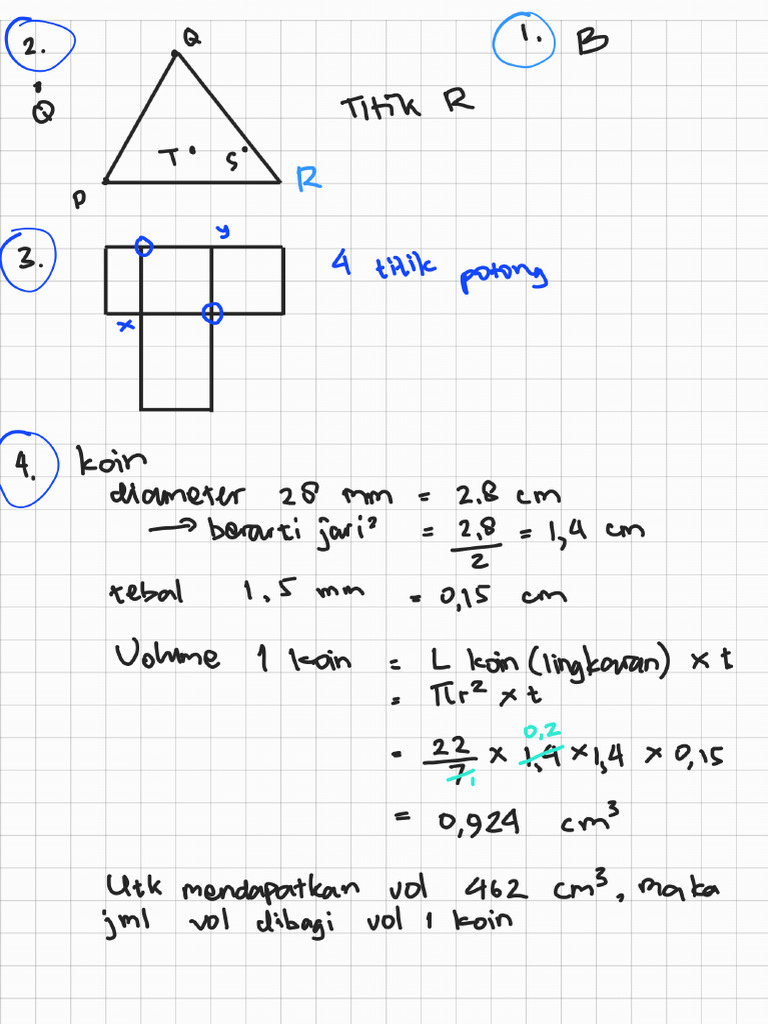 2.
1. B
Q
Q
Titik R
T S
P R
3.
y
4 titik potong
x
4. koin
diameter 28 mm = 2.8 cm
→ berarti jari² = 2,8/2 = 1,4 cm
tebal 1,5 mm = 0,15 cm
Volume 1 koin = L koin (lingkaran) × t
= πr² × t
0,2
= 22/7 × 1,4 × 1,4 × 0,15
1
= 0,924 cm³
Utk mendapatkan vol 462 cm³, maka
jml vol dibagi vol 1 koin